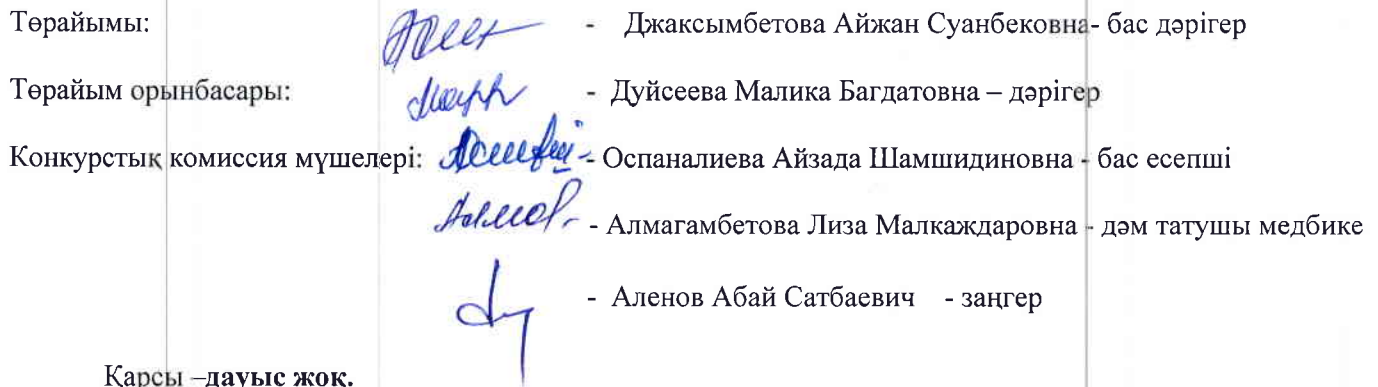 Төрайымы: - Джаксымбетова Айжан Суанбековна- бас дәрігер
Төрайым орынбасары: - Дуйсеева Малика Багдатовна – дәрігер
Конкурстық комиссия мүшелері: - Оспаналиева Айзада Шамшидиновна - бас есепші
- Алмагамбетова Лиза Малкаждаровна - дәм татушы медбике
- Аленов Абай Сатбаевич - заңгер
Қарсы –дауыс жоқ.